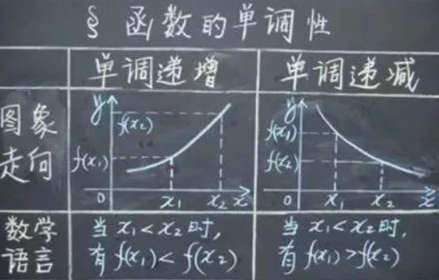 § 函数的单调性
单调递增 单调递减
图象走向
y
f(x₂)
f(x₁)
0 x₁ x₂ x
y
f(x₁)
f(x₂)
0 x₁ x₂ x
数学语言
当 x₁<x₂时,
有 f(x₁)<f(x₂)
当 x₁<x₂时,
有 f(x₁)>f(x₂)